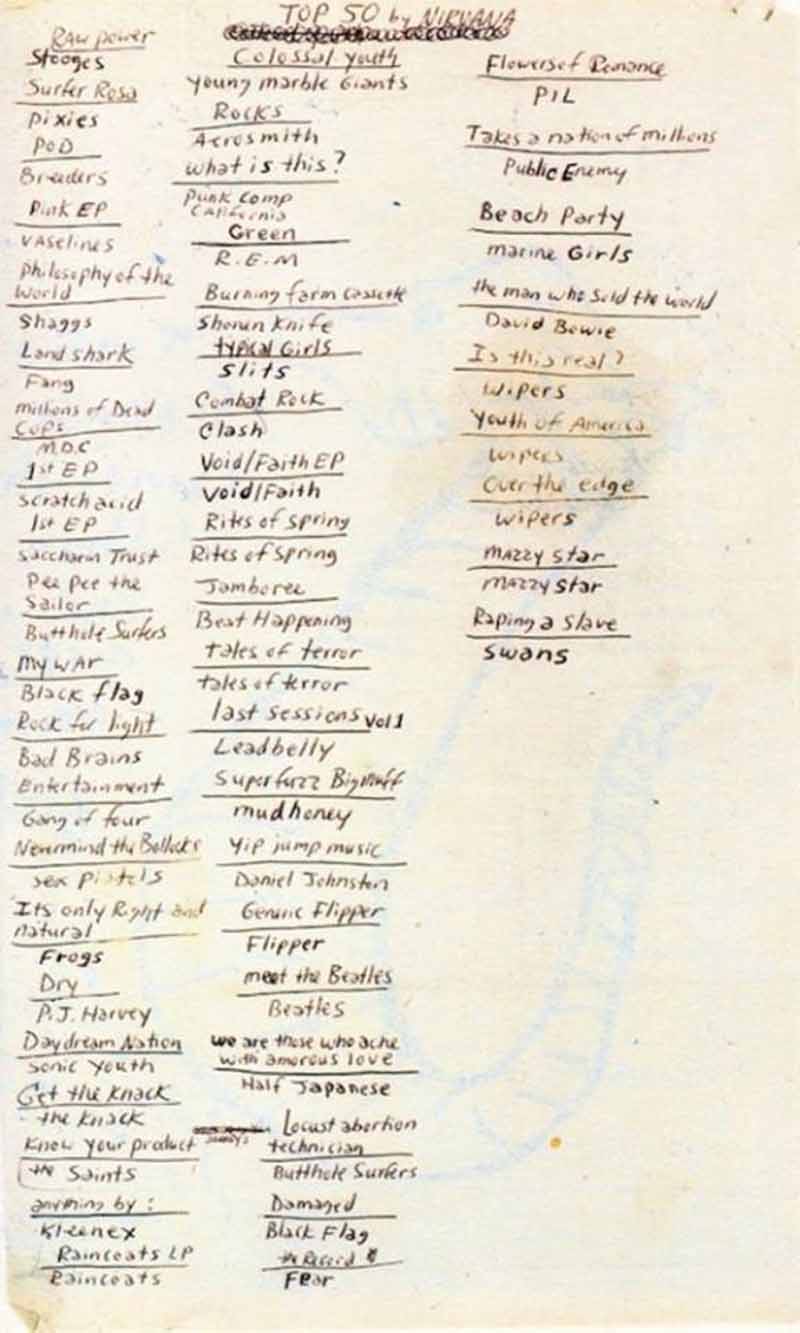 TOP 50 by NIRVANA
Raw power
Stooges
Surfer Rosa
Pixies
POD
Breeders
Pink EP
Vaselines
Philosophy of the
World
Shaggs
Land shark
Fang
millions of Dead
Cops
M.D.C
1st EP
Scratch acid
1st EP
Saccharin Trust
Pee Pee the
Sailor
Butthole Surfers
My war
Black flag
Rock for light
Bad Brains
Entertainment
Gang of four
Nevermind the Bollocks
Sex Pistols
Its only Right and
natural
Frogs
Dry
P.J. Harvey
Daydream Nation
Sonic Youth
Get the Knack
the Knack
Know Your product
the Saints
anything by:
Kleenex
Raincoats LP
Raincoats
Colossal Youth
Young marble Giants
Rocks
Aerosmith
What is this?
Punk Comp
California
Green
R.E.M
Burning farm Cassette
Shonen Knife
typical Girls
Slits
Combat Rock
Clash
Void/Faith EP
Void/Faith
Rites of Spring
Rites of Spring
Jamboree
Beat Happening
tales of terror
tales of terror
last sessions Vol 1
Leadbelly
Superfuzz Bigmuff
mudhoney
Yip jump music
Daniel Johnston
Generic Flipper
Flipper
meet the Beatles
Beatles
we are those who ache
with amorous love
Half Japanese
Locust abortion
technician
Butthole Surfers
Damaged
Black Flag
the Record
Fear
Flowers of Romance
PIL
Takes a nation of millions
Public Enemy
Beach Party
marine Girls
the man who Sold the world
David Bowie
Is this real?
Wipers
Youth of America
Wipers
Over the edge
Wipers
Mazzy Star
Mazzy Star
Raping a Slave
Swans